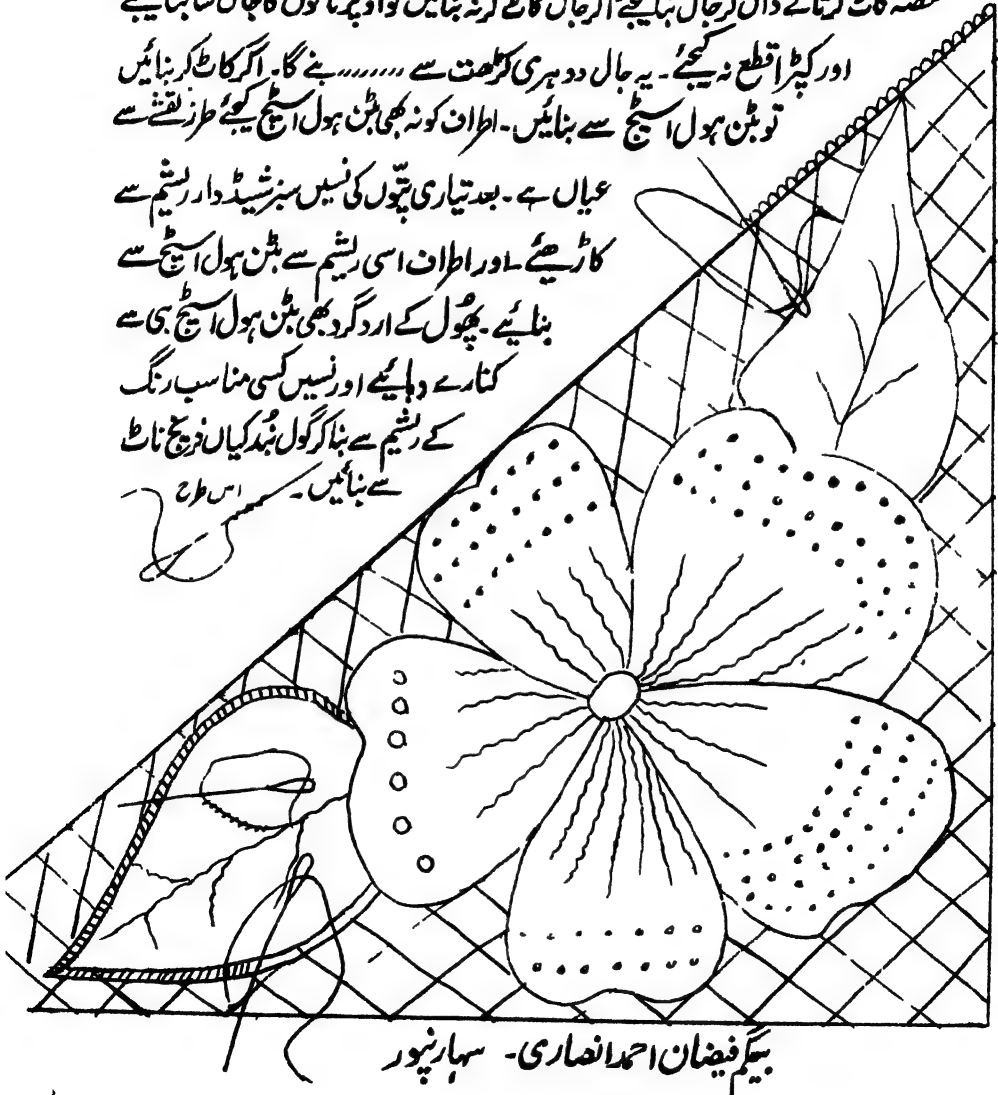 حصہ کاٹ کر تانے ڈال کر جال بنا لیجئے اگر جال کاٹ کر نہ بنائیں تو اوپر تانوں کا جال سا بنا لیجئے
اور کپڑا قطع نہ کیجئے۔ یہ جال دوہری کڑھت سے ،،،،،،،، بنے گا۔ اگر کاٹ کر بنائیں
تو بٹن ہول اسٹیچ سے بنائیں۔ اطراف کونہ بھی بٹن ہول اسٹیچ کیجئے طرز نقشے سے
عیاں ہے۔ بعد تیاری پتّوں کی نسیں سبز شیڈدار ریشم سے
کاڑھیئے۔ اور اطراف اسی ریشم سے بٹن ہول اسٹیچ سے
بنائیے۔ پھُول کے اردگرد بھی بٹن ہول اسٹیچ ہی سے
کنارے دبائیے اور نسیں کسی مناسب رنگ
کے ریشم سے بنا کر گول بُندکیاں فرنچ ناٹ
سے بنائیں۔ اس طرح
بیگم فیضان احمد انصاری۔ سہارنپور